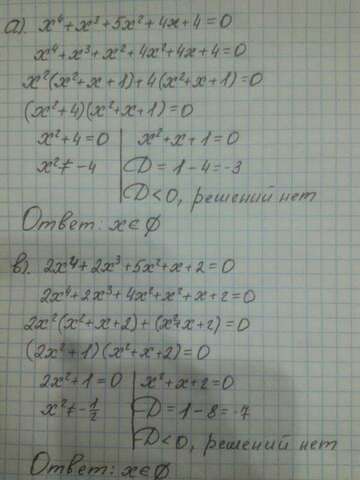 а) x⁴+x³+5x²+4x+4=0
x⁴+x³+x²+4x²+4x+4=0
x²(x²+x+1)+4(x²+x+1)=0
(x²+4)(x²+x+1)=0
x²+4=0 | x²+x+1=0
x²≠-4 | D=1-4=-3
D<0, решений нет
Ответ: x∈∅
в) 2x⁴+2x³+5x²+x+2=0
2x⁴+2x³+4x²+x²+x+2=0
2x²(x²+x+2)+(x²+x+2)=0
(2x²+1)(x²+x+2)=0
2x²+1=0 | x²+x+2=0
x²≠-1/2 | D=1-8=-7
D<0, решений нет
Ответ: x∈∅